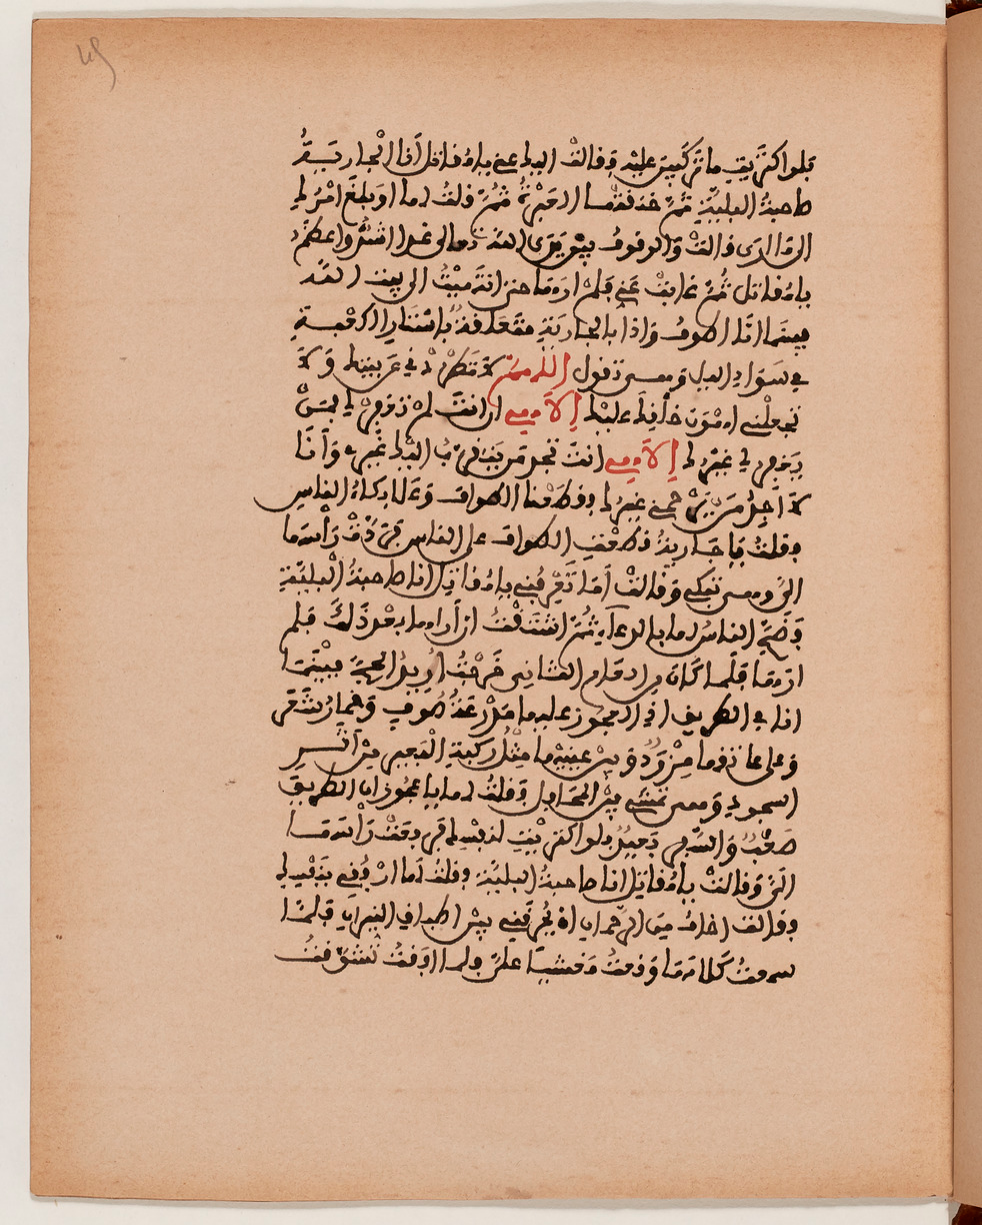 فلوا كتريت ما تركبين عليه فقالت اليك عني يامقاتل أنا الجارية
صاحبة البلية ثم خنقتها العبرة ثم قلت لها او بلغ امرك
الى ذا الذى قالت والوقوف بين يدى الله تعالى غدا اشد واعظم
يامقاتل ثم غابت عني فلم ارها حتى انتهيت الى بيت الله
بينما انا اطوف واذا بالجارية متعلقة باستار الكعبة
في سواد اليل وهي تقول اللهم لا تطردني عن بيتك ولا
تجعلني اهون خلقك عليك إلاهي ان انت لم ترحمني لمن
يرحمني غيرك إلاهي انت تجد من تعذب اليك غيري وأنا
لا أجد من يرحمني غيرك فقطعنا الطواف وعلا بكاء الناس
فقلت يا جارية قطعت الطواف على الناس فرفعت رأسها
الي وهي تبكي وقالت أما تعرفني يامقاتل انا صاحبة البلية
فضج الناس لها بالدعاء ثم اشتقت ان أراها بعد ذلك فلم
ارها فلما كان من العام الثاني خرجت اريد الحج فبينما
انا في الطريق اذا بعجوز عليها مدرعة صوف وخمار شعر
وعلى عاتقها مزود وبين عينيها مثل ركبة البعير من اثر
السجود وهي تمشي بين المحامل فقلت لها يا عجوز ان الطريق
صعب والسفر بعيد فلوا كتريت لنفسك فرفعت رأسها
الي وقالت يامقاتل انا صاحبة البلية فقلت لها ارفقي بنفسك
فقالت اخاف من الرحمان ان يحرقني بين اطباق النيران فلما
سمعت كلامها وقعت مغشيا علي ولما افقت